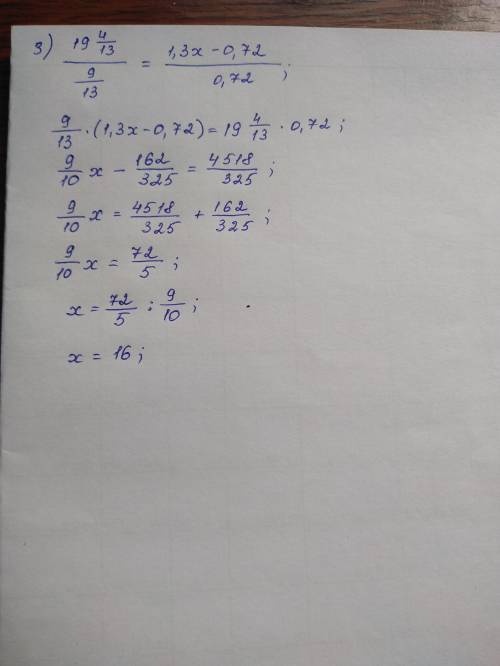 3) 19 4/13 / 9/13 = 1,3x - 0,72 / 0,72 ;
9/13 · (1,3x - 0,72) = 19 4/13 · 0,72 ;
9/10 x - 162/325 = 4518/325 ;
9/10 x = 4518/325 + 162/325 ;
9/10 x = 72/5 ;
x = 72/5 : 9/10 ;
x = 16 ;